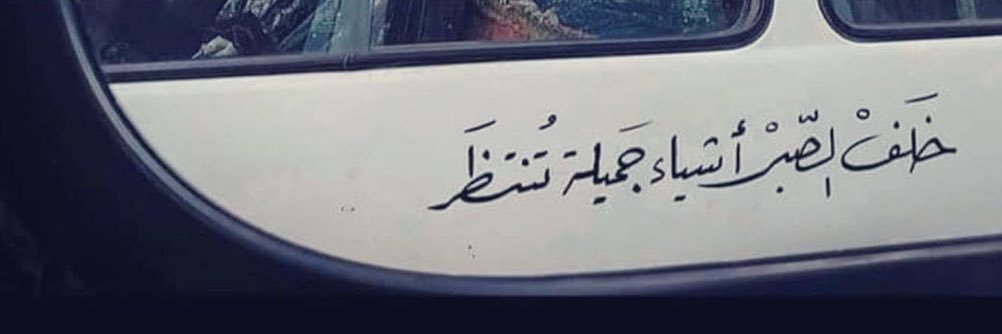 خَلَفْ الصّبْر أشياء جَميلة تُنتظَر